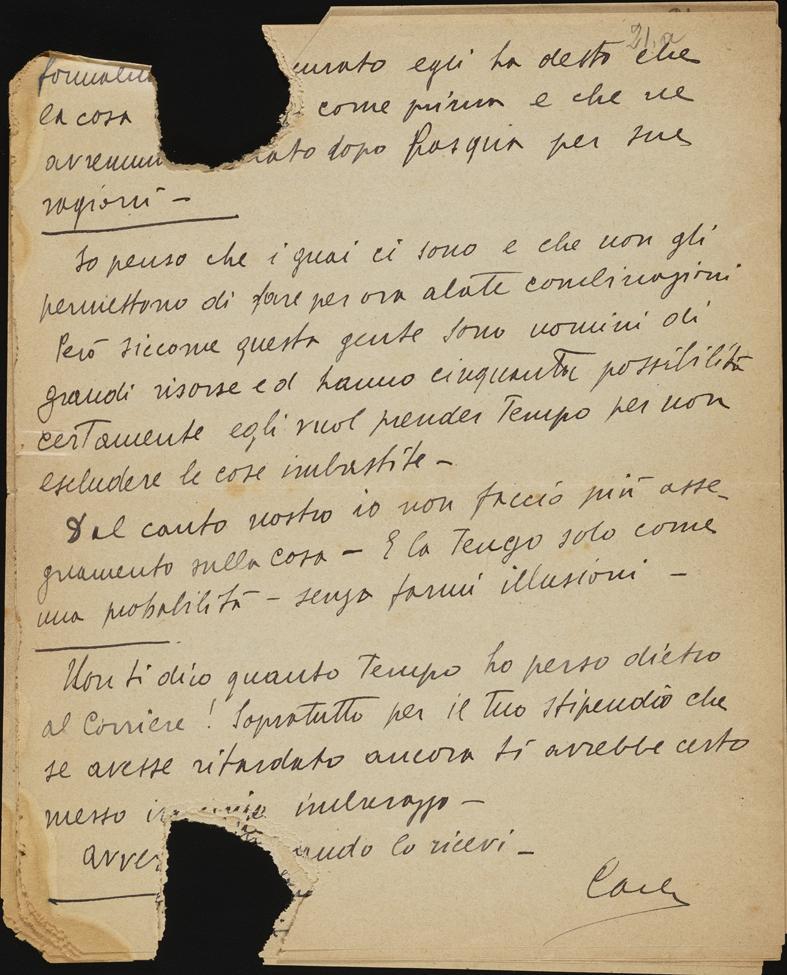 21.a
egli ha detto che
la cosa come prima e che ne
dopo Pasqua per sue
ragioni -
Io penso che i guai ci sono e che non gli
permettono di fare per ora alate combinazioni
Però siccome questa gente sono uomini di
grandi risorse ed hanno cinquanta possibilità
certamente egli vuol prender Tempo per non
escludere le cose imbastite -
Dal canto nostro io non faccio più asse-
gnamento sulla cosa - E la Tengo solo come
una probabilità - senza farmi illusioni -
Non ti dico quanto Tempo ho perso dietro
al Corriere! Sopratutto per il tuo stipendio che
se avesse ritardato ancora ti avrebbe certo
messo imbarazzo -
lo ricevi -